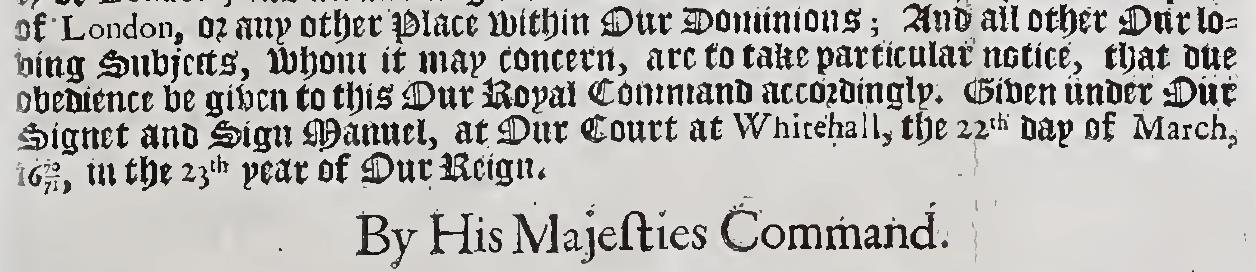 of London, oꝛ any other Place within Our Dominions; And all other Our lo=
ving Subjects, whom it may concern, are to take particular notice, that due
obedience be given to this Our Royal Command accoꝛdingly. Given under Our
Signet and Sign Manuel, at Our Court at Whitehall, the 22th day of March,
1670/71, in the 23th year of Our Reign.
By His Majeſties Command.